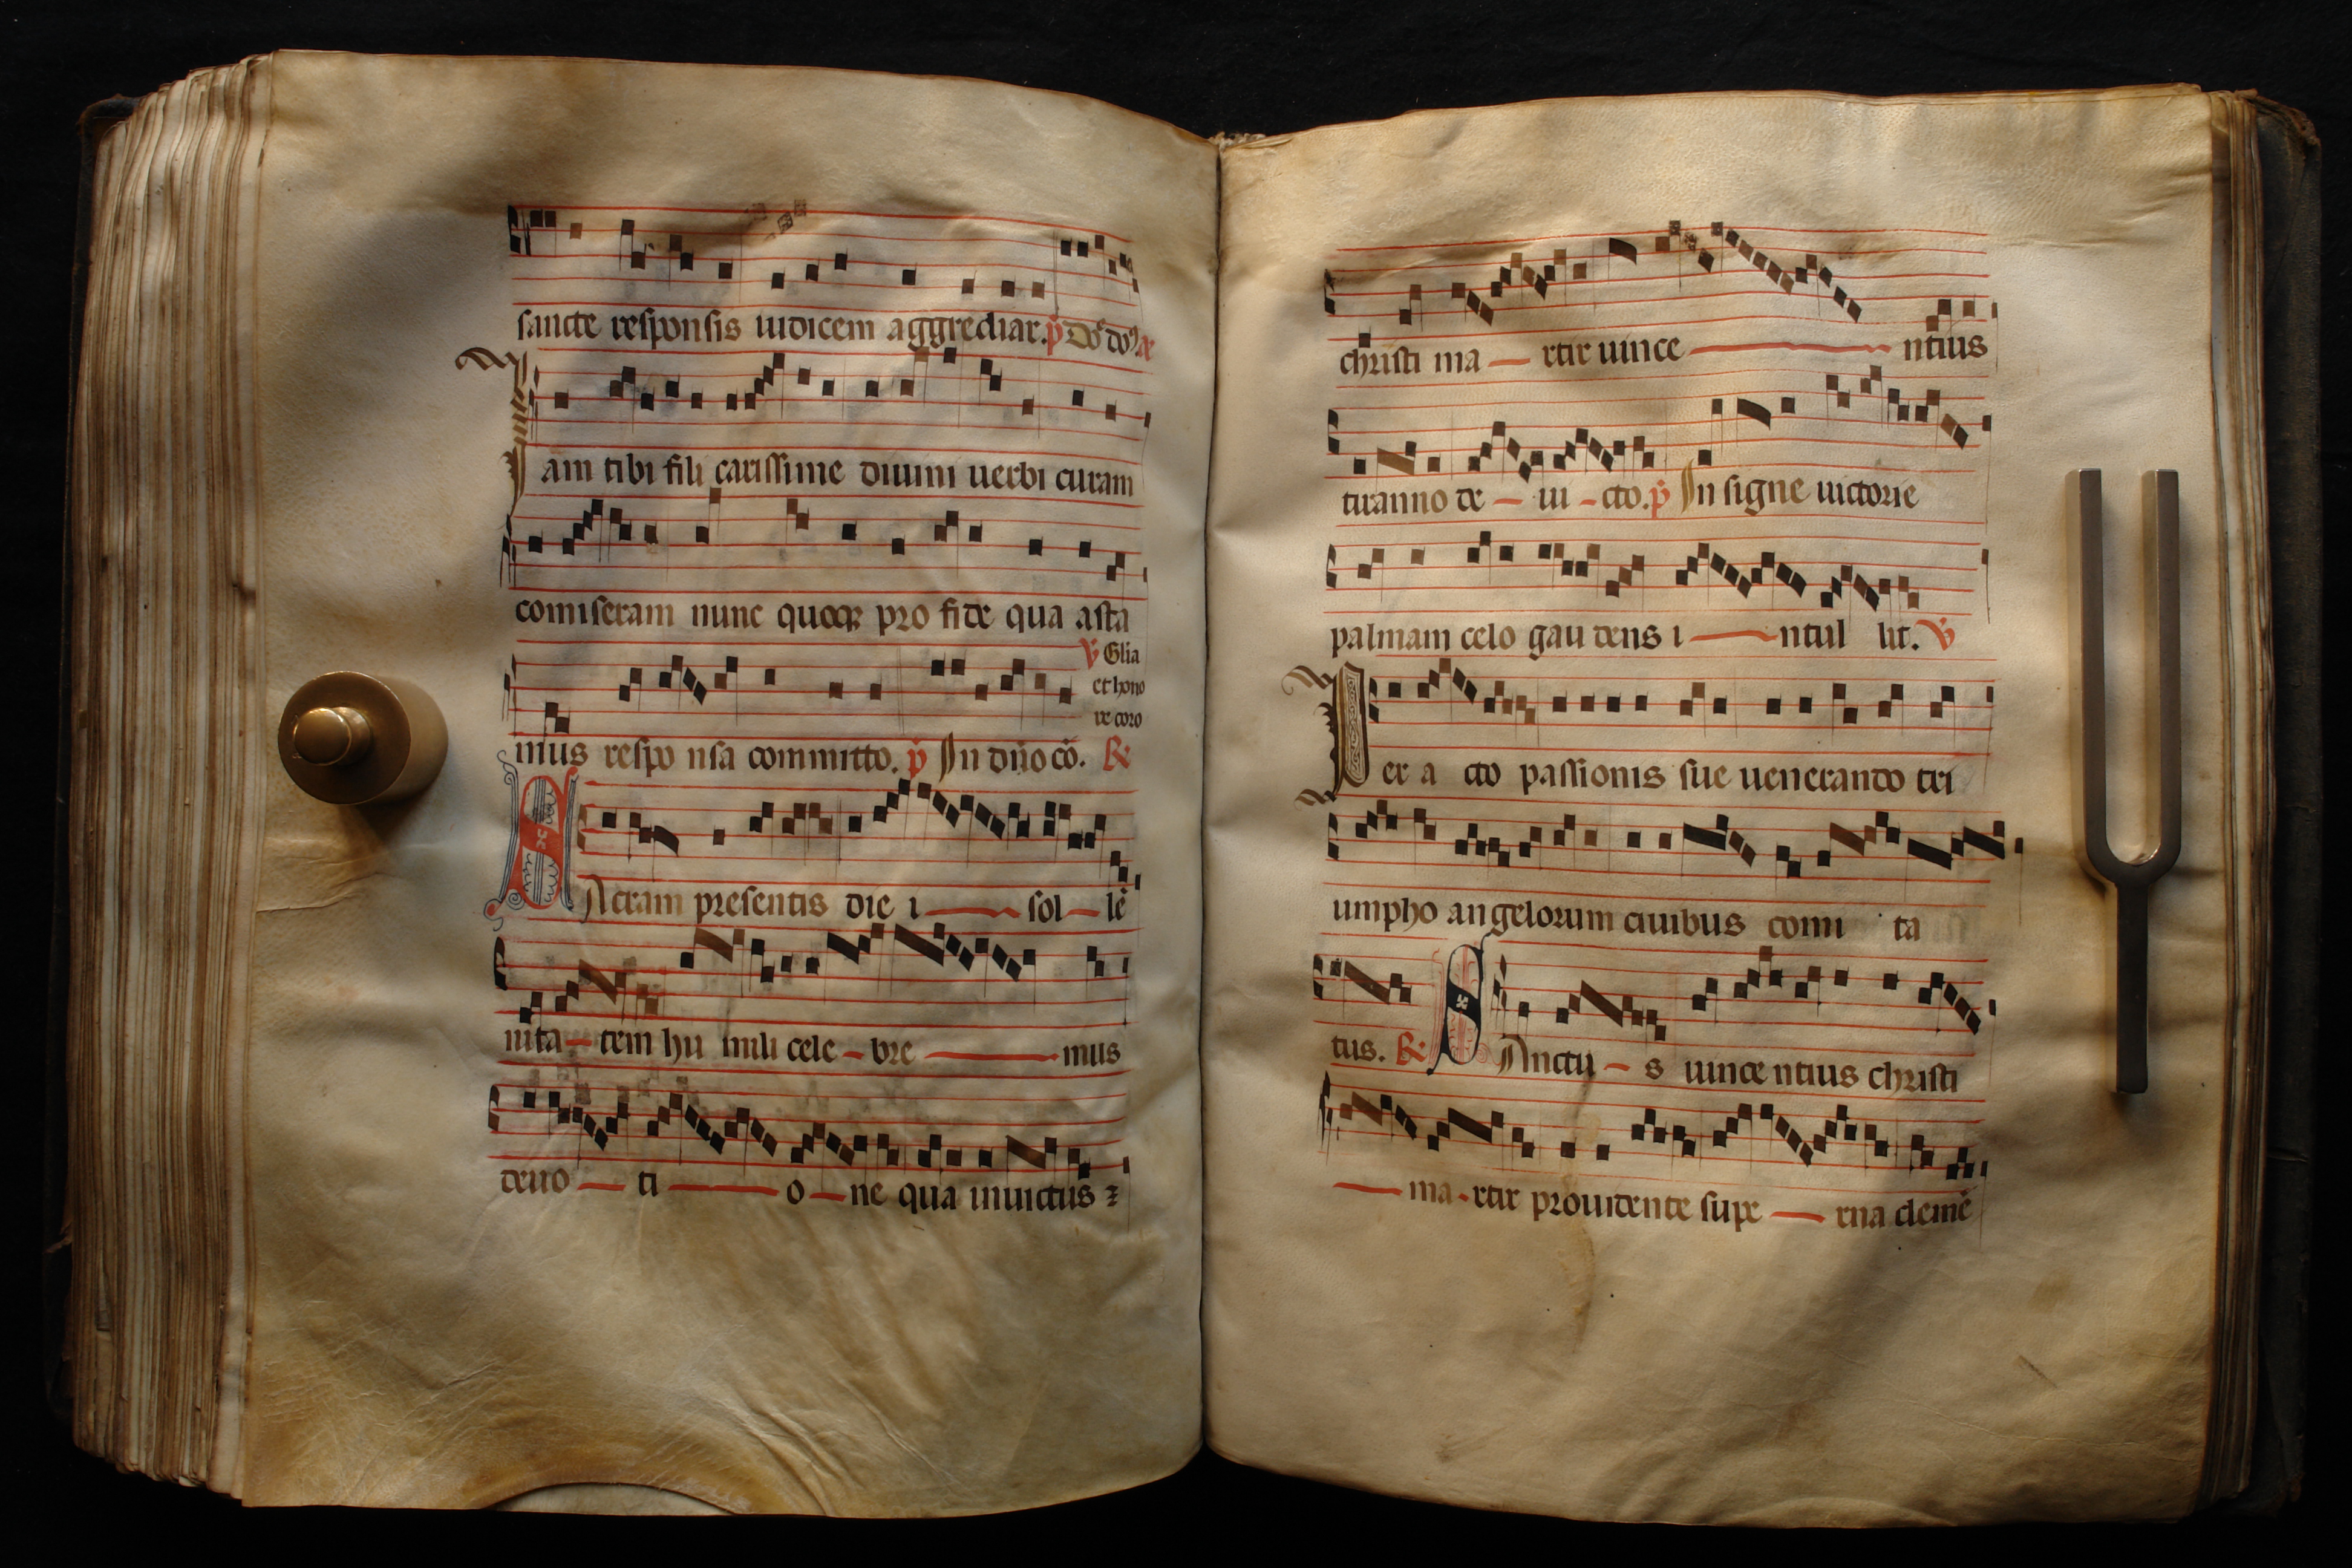 sancte responsis iudicem aggrediar. p̄ Do
Iam tibi fili carissime diuini uerbi curam
comiseram nunc quoqꝫ pro fide qua asta
℣ Glia
et hono
re coro
mus respo nsa committo. p̄ In dn̄o cō. ℟
SAcram presentis die i sol lē
nita tem hu mili cele bre mus
deuo ti o ne qua inuictus ⁊
christi ma rtir uince ntius
tiranno de ui cto. p̄ In signe uictorie
palmam celo gau dens i ntul lit. ℣
Per a cto passionis sue uenerando tri
umpho angelorum ciuibus comi ta
tus. ℟ SAnctu s uince ntius christi
ma rtir prouidente supe rna clemē